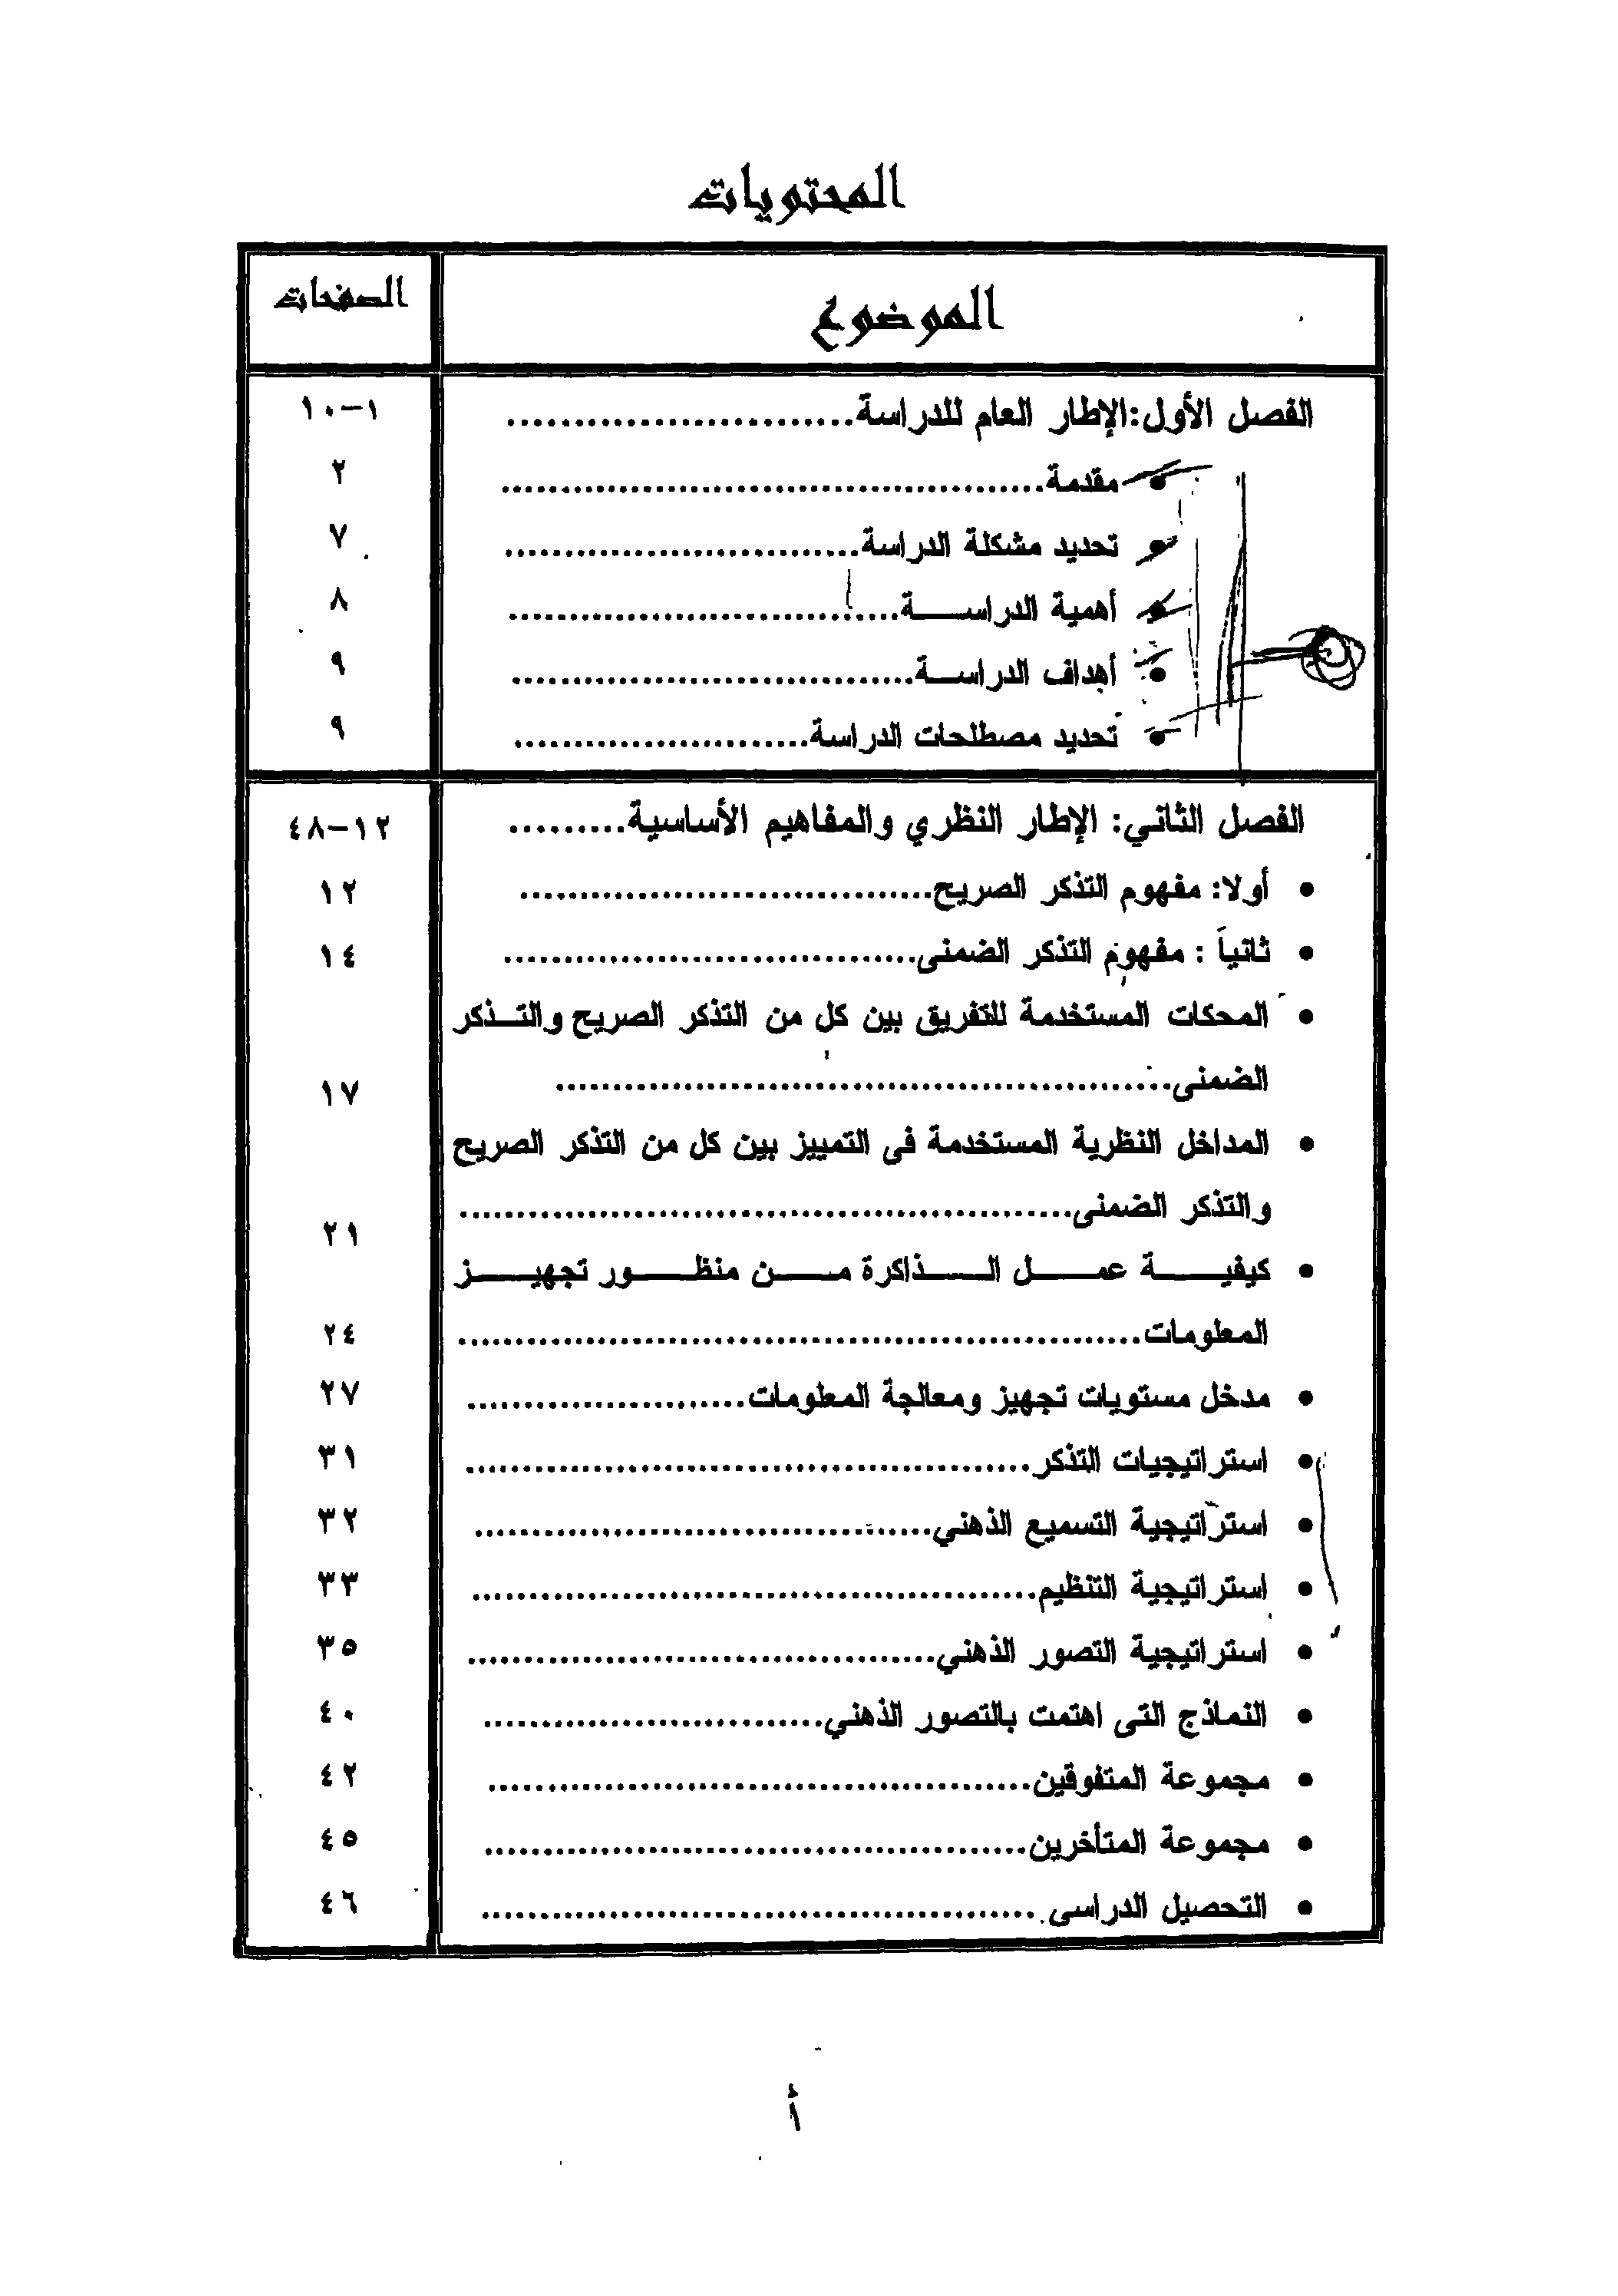 المحتويات
الموضوع
الصفحات
الفصل الأول:الإطار العام للدراسة.......................... ١-١٠
• مقدمة......................................... ٢
• تحديد مشكلة الدراسة........................... ٧
• أهمية الدراســـة............................. ٨
• أهداف الدراســة.............................. ٩
• تحديد مصطلحات الدراسة...................... ٩
الفصل الثاني: الإطار النظري والمفاهيم الأساسية......... ١٢-٤٨
• أولا: مفهوم التذكر الصريح............................... ١٢
• ثانياً : مفهوم التذكر الضمنى............................... ١٤
• المحكات المستخدمة للتفريق بين كل من التذكر الصريح والتــذكر
الضمنى.............................................. ١٧
• المداخل النظرية المستخدمة فى التمييز بين كل من التذكر الصريح
والتذكر الضمنى.............................................. ٢١
• كيفيـــــة عمـــــل الـــــذاكرة مـــــن منظـــــور تجهيـــــز
المعلومات.................................................. ٢٤
• مدخل مستويات تجهيز ومعالجة المعلومات..................... ٢٧
• استراتيجيات التذكر.......................................... ٣١
• استراتيجية التسميع الذهني.................................. ٣٢
• استراتيجية التنظيم.......................................... ٣٣
• استراتيجية التصور الذهني................................... ٣٥
• النماذج التى اهتمت بالتصور الذهني......................... ٤٠
• مجموعة المتفوقين......................................... ٤٢
• مجموعة المتأخرين......................................... ٤٥
• التحصيل الدراسى.......................................... ٤٦
أ